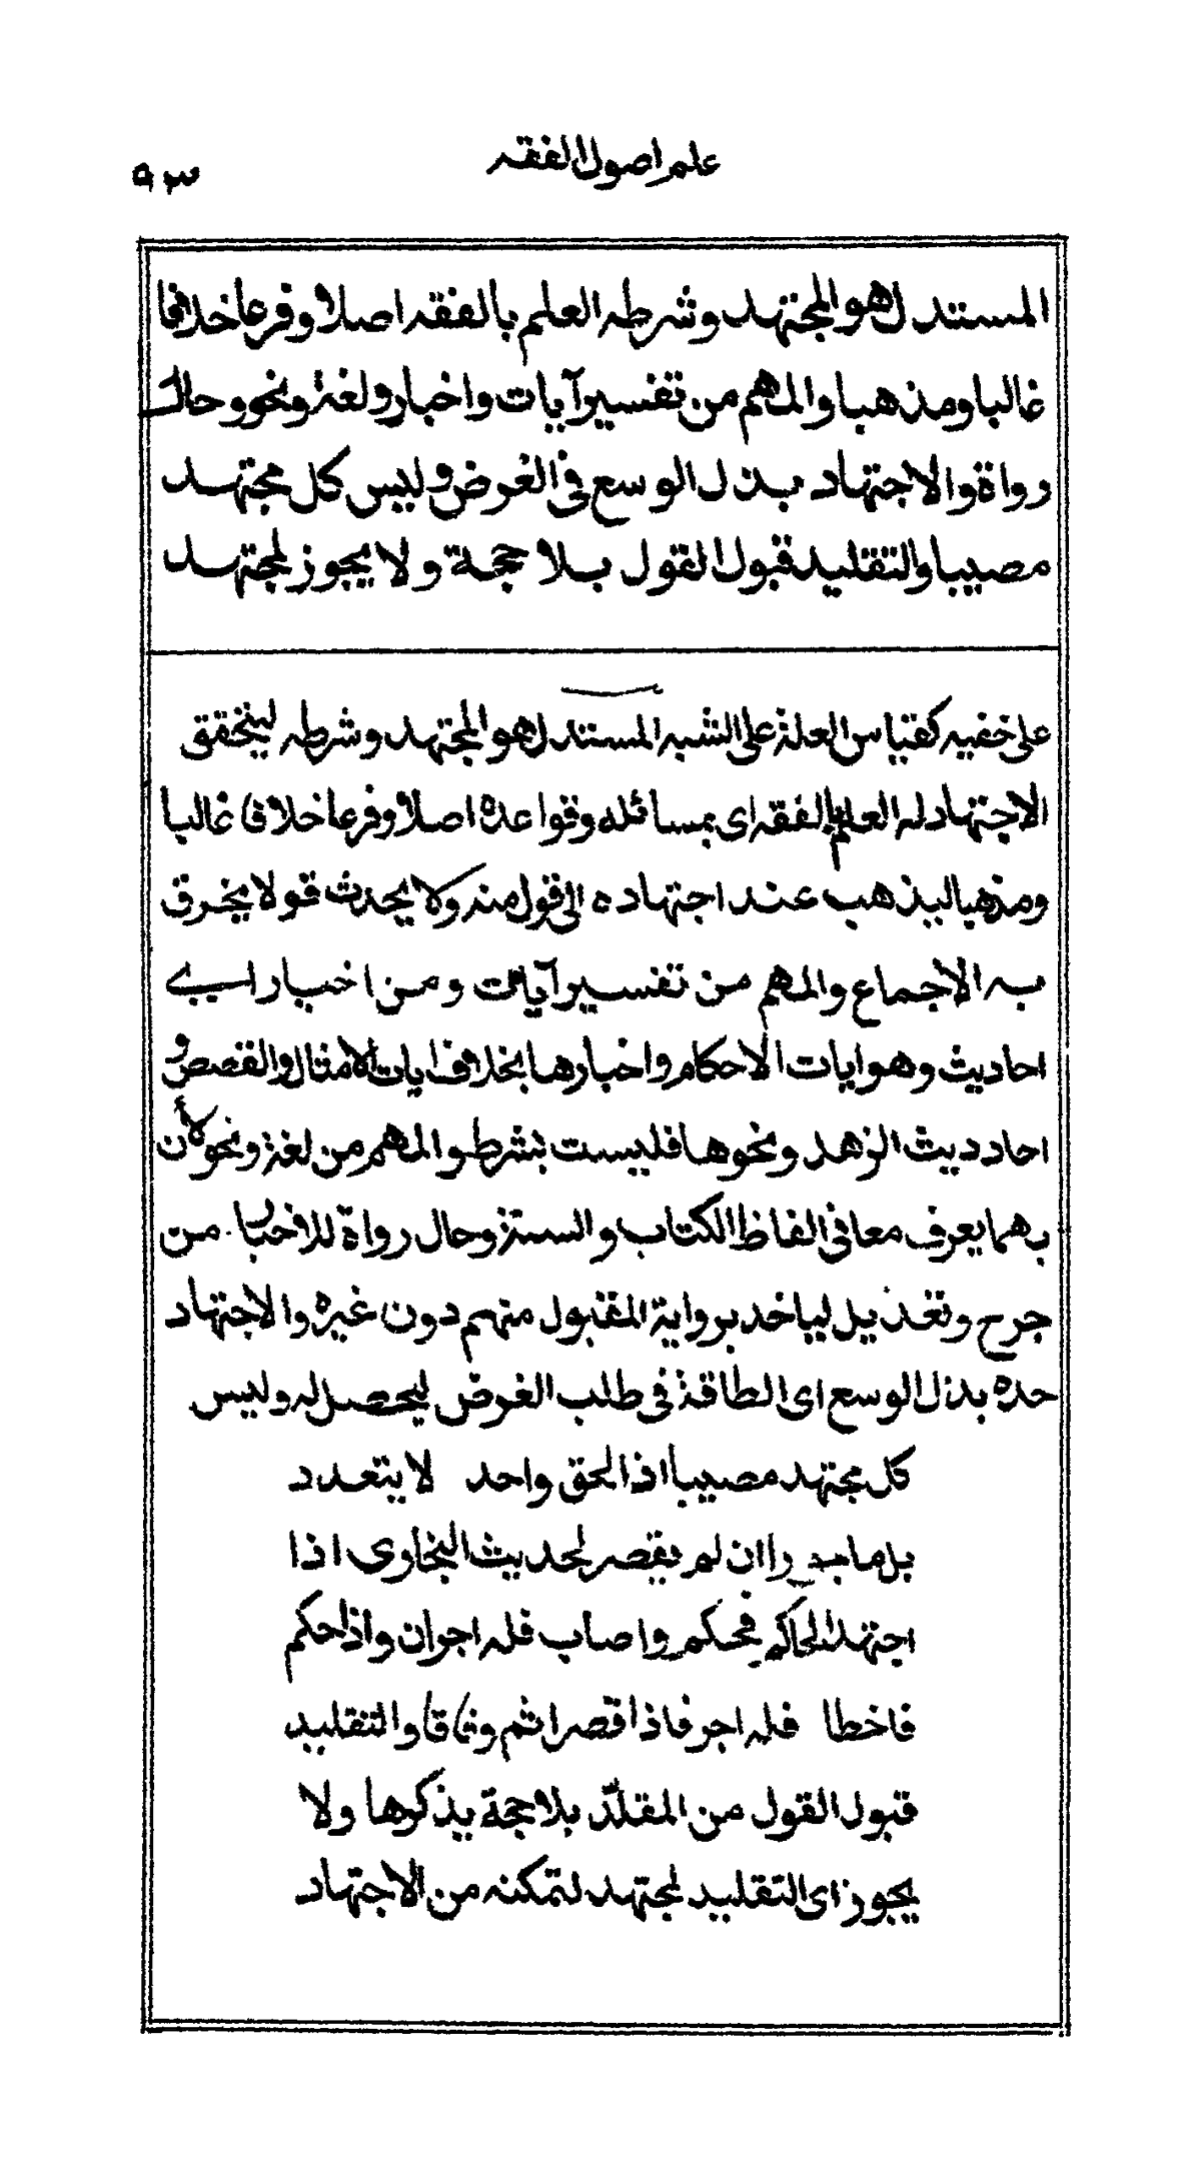 علم اصول الفقه
٩٣
المستدل هو المجتهد وشرطه العلم بالفقه اصلا وفرعا خلافا
غالبا ومذهبا والمهم من تفسير آيات واخبار ولغة ونحو وحال
رواة والاجتهاد بذل الوسع فى الغرض وليس كل مجتهد
مصيبا والتقليد قبول القول بلا حجة ولا يجوز لمجتهد
على خفيه كقياس العلة على الشبه المستدل هو المجتهد وشرطه ليتحقق
الاجتهاد له العلم بالفقه اى بمسائله وقواعده اصلا وفرعا خلافا غالبا
ومذهبا ليذهب عند اجتهاده الى قول منه ولا يحدث قولا يخرق
به الاجماع والمهم من تفسير آيات ومن اخبار اى
احاديث وهو ايات الاحكام واخبارها بخلاف ايات الامثال والقصص و
احاديث الزهد ونحوها فليست بشرط والمهم من لغة ونحو لأن
بهما يعرف معانى الفاظ الكتاب والسنة وحال رواة للاخبار من
جرح وتعديل لياخد برواية المقبول منهم دون غيره والاجتهاد
حده بذل الوسع اى الطاقة فى طلب الغرض ليحصل له وليس
كل مجتهد مصيبا اذ الحق واحد لا يتعدد
بل ماجورا ان لم يقصر لحديث البخاوى اذا
اجتهد الحاكم فحكم واصاب فله اجران واذا حكم
فاخطا فله اجر فاذا قصر اثم وفاقا والتقليد
قبول القول من المقلد بلا حجة يذكرها ولا
يجوز اى التقليد لمجتهد لتمكنه من الاجتهاد